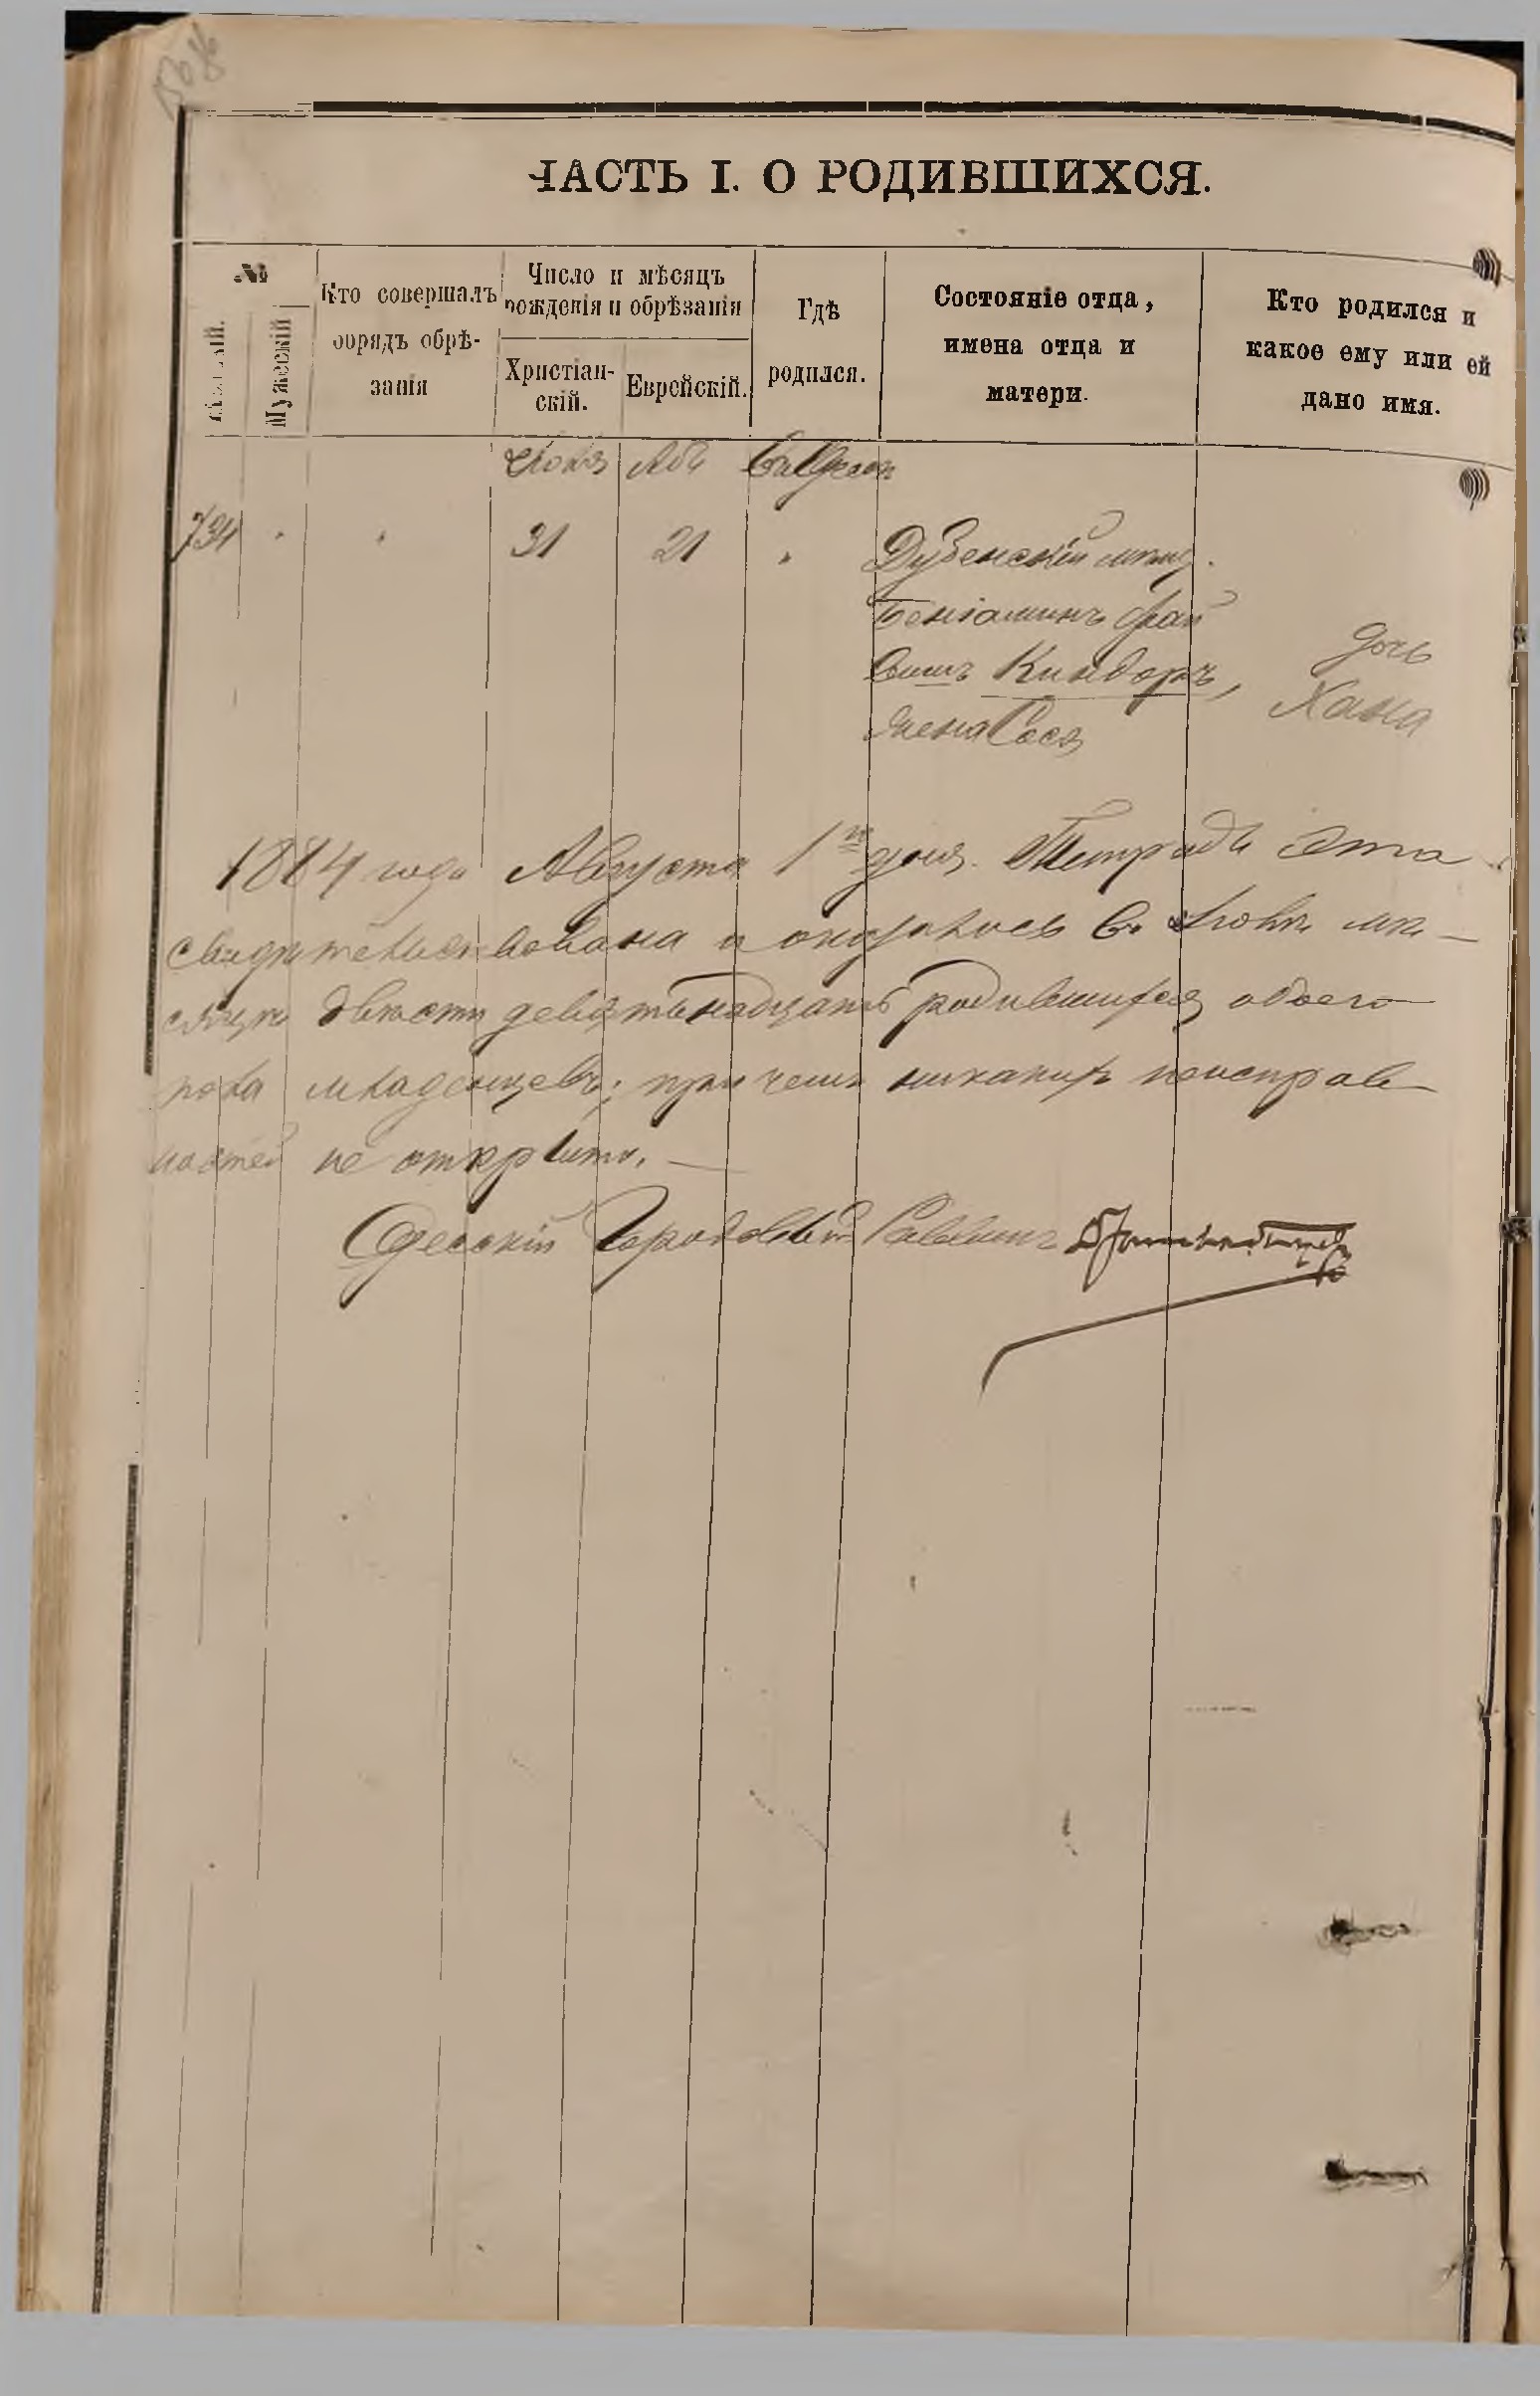 ЧАСТЬ I. О РОДИВШИХСЯ.
№
Женскій.
Мужескій
Кто совершалъ
обрядъ обрѣ-
занія
Число и мѣсяцъ
рожденія и обрѣзанія
Христіан-
скій.
Еврейскій.
Гдѣ
родился.
Состояніе отца,
имена отца и
матери.
Кто родился и
какое ему или ей
дано имя.
Іюля Абъ Въ Одессѣ
734 " " 31 21 "
Дубенскій мѣщ.
Беніаминъ Фай
вишъ Киндоръ,
жена Сося
дочь
Хана
1884 года Августа 1го дня. Тетрадь эта
свидѣтельствована и оказалось въ Іюлѣ мѣ-
сяцѣ двѣсти девятьнадцать родившихся обоего
пола младенцевъ; при чемъ никакихъ неисправ-
ностей не открыто.
Одесскій Городовый Раввинъ